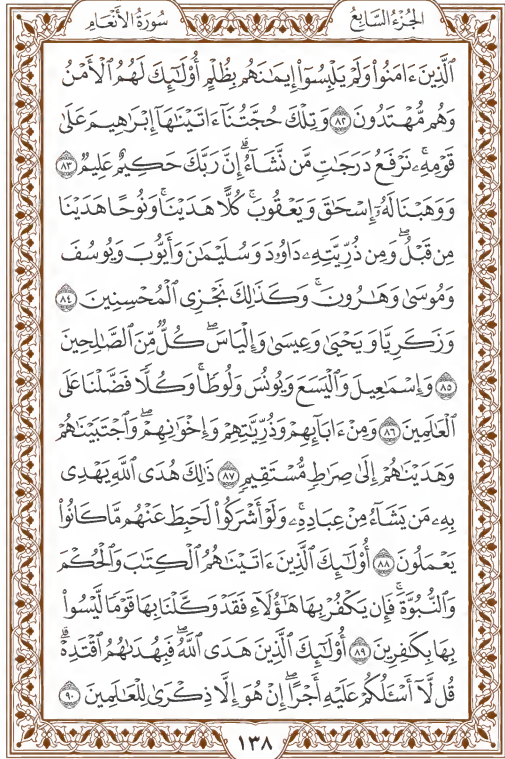 الجُزْءُ السَّابِعُ سُورَةُ الأَنْعَامِ
ٱلَّذِينَ ءَامَنُواْ وَلَمْ يَلْبِسُوٓاْ إِيمَٰنَهُم بِظُلْمٍ أُوْلَٰٓئِكَ لَهُمُ ٱلْأَمْنُ
وَهُم مُّهْتَدُونَ ٨٢ وَتِلْكَ حُجَّتُنَآ ءَاتَيْنَٰهَآ إِبْرَٰهِيمَ عَلَىٰ
قَوْمِهِۦۚ نَرْفَعُ دَرَجَٰتٍ مَّن نَّشَآءُۗ إِنَّ رَبَّكَ حَكِيمٌ عَلِيمٌ ٨٣
وَوَهَبْنَا لَهُۥٓ إِسْحَٰقَ وَيَعْقُوبَۚ كُلًّا هَدَيْنَاۚ وَنُوحًا هَدَيْنَا
مِن قَبْلُۖ وَمِن ذُرِّيَّتِهِۦ دَاوُۥدَ وَسُلَيْمَٰنَ وَأَيُّوبَ وَيُوسُفَ
وَمُوسَىٰ وَهَٰرُونَۚ وَكَذَٰلِكَ نَجْزِى ٱلْمُحْسِنِينَ ٨٤
وَزَكَرِيَّا وَيَحْيَىٰ وَعِيسَىٰ وَإِلْيَاسَۖ كُلٌّ مِّنَ ٱلصَّٰلِحِينَ
٨٥ وَإِسْمَٰعِيلَ وَٱلْيَسَعَ وَيُونُسَ وَلُوطًاۚ وَكُلًّا فَضَّلْنَا عَلَى
ٱلْعَٰلَمِينَ ٨٦ وَمِنْ ءَابَآئِهِمْ وَذُرِّيَّٰتِهِمْ وَإِخْوَٰنِهِمْۖ وَٱجْتَبَيْنَٰهُمْ
وَهَدَيْنَٰهُمْ إِلَىٰ صِرَٰطٍ مُّسْتَقِيمٍ ٨٧ ذَٰلِكَ هُدَى ٱللَّهِ يَهْدِى
بِهِۦ مَن يَشَآءُ مِنْ عِبَادِهِۦۚ وَلَوْ أَشْرَكُواْ لَحَبِطَ عَنْهُم مَّا كَانُواْ
يَعْمَلُونَ ٨٨ أُوْلَٰٓئِكَ ٱلَّذِينَ ءَاتَيْنَٰهُمُ ٱلْكِتَٰبَ وَٱلْحُكْمَ
وَٱلنُّبُوَّةَۚ فَإِن يَكْفُرْ بِهَا هَٰٓؤُلَآءِ فَقَدْ وَكَّلْنَا بِهَا قَوْمًا لَّيْسُواْ
بِهَا بِكَٰفِرِينَ ٨٩ أُوْلَٰٓئِكَ ٱلَّذِينَ هَدَى ٱللَّهُۖ فَبِهُدَىٰهُمُ ٱقْتَدِهْۗ
قُل لَّآ أَسْـَٔلُكُمْ عَلَيْهِ أَجْرًاۖ إِنْ هُوَ إِلَّا ذِكْرَىٰ لِلْعَٰلَمِينَ ٩٠
١٣٨